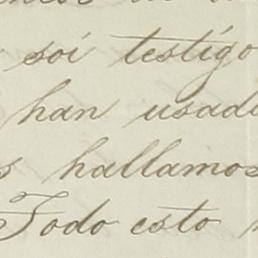 soi testigo
han usado
s hallamos
Todo esto